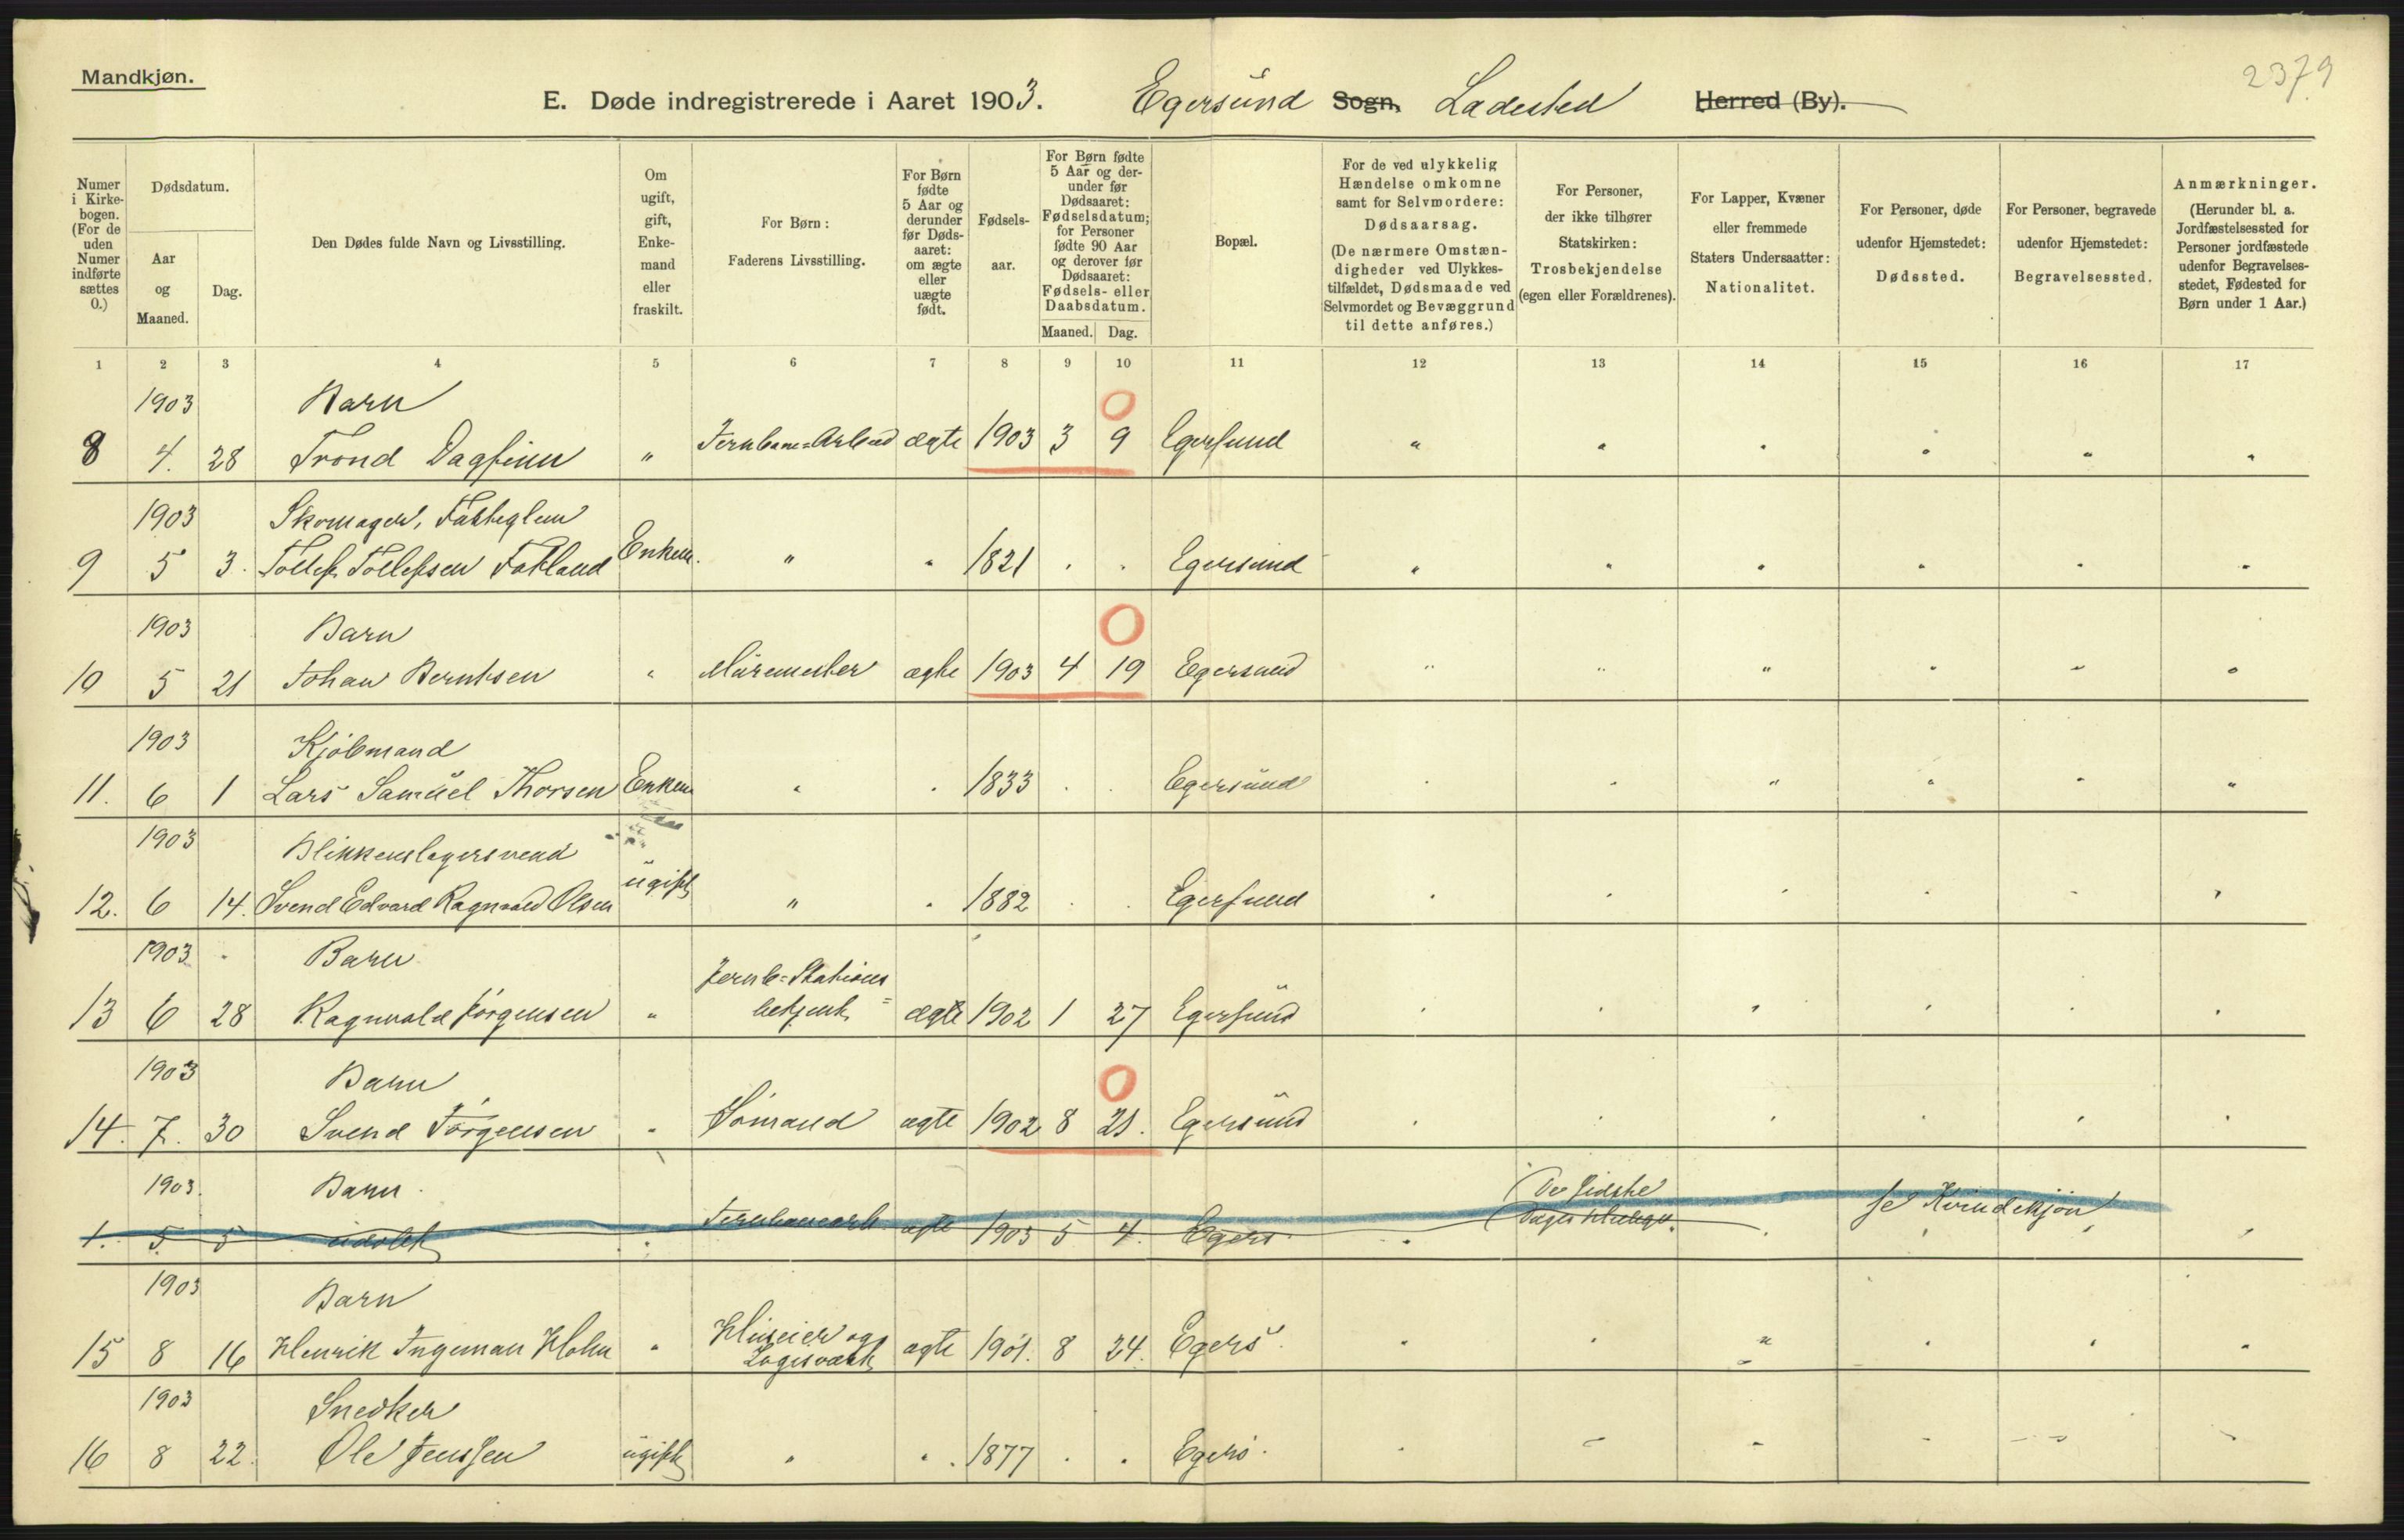 Mandkjøn.
2379
E. Døde indregistrerede i Aaret 1903. Egersund Sogn, Ladested Herred (By).
Numer i Kirkebogen. (For de uden Numer indførte sættes 0.)
Dødsdatum.
Aar og Maaned.
Dag.
Den Dødes fulde Navn og Livsstilling.
Om ugift, gift, Enkemand eller fraskilt.
For Børn: Faderens Livsstilling.
For Børn fødte 5 Aar og derunder før Dødsaaret: om ægte eller uægte født.
Fødselsaar.
For Børn fødte 5 Aar og derunder før Dødsaaret: Fødselsdatum; for Personer fødte 90 Aar og derover før Dødsaaret: Fødsels- eller Daabsdatum.
Maaned. Dag.
Bopæl.
For de ved ulykkelig Hændelse omkomne samt for Selvmordere: Dødsaarsag. (De nærmere Omstændigheder ved Ulykkestilfældet, Dødsmaade ved Selvmordet og Bevæggrund til dette anføres.)
For Personer, der ikke tilhører Statskirken: Trosbekjendelse (egen eller Forældrenes).
For Lapper, Kvæner eller fremmede Staters Undersaatter: Nationalitet.
For Personer, døde udenfor Hjemstedet: Dødssted.
For Personer, begravede udenfor Hjemstedet: Begravelsessted.
Anmærkninger. (Herunder bl. a. Jordfæstelsessted for Personer jordfæstede udenfor Begravelsesstedet, Fødested for Børn under 1 Aar.)
1 2 3 4 5 6 7 8 9 10 11 12 13 14 15 16 17
1903 Barn 0
8 4. 28 Trond Dagfinn " Jernbane=Arbeid ægte 1903 3 9 Egersund " " " " " "
1903 Skomager,
9 5 3. Tollef Tollefsen Enkem. " " 1821 " " Egersund " " " " " "
1903 Barn 0
10 5 21 Johan Berntsen " Muremester ægte 1903 4 19 Egersund " " " " " "
1903 Kjøbmand
11. 6 1 Lars Samuel Thorsen Enkem " " 1833 " " Egersund " " " " " "
1903 Blikkenslagersvend
12. 6 14. Svend Edvard Ragnvald Olsen ugift " " 1882 " " Egersund " " " " " "
1903 Barn Jernb=Stations=
13 6 28 Ragnvald Jørgensen " betjent ægte 1902 1 27 Egersund " " " " " "
1903 Barn 0
14. 7. 30 Svend Jørgensen " Sømand ægte 1902 8 21. Egersund " " " " " "
1903. Barn. (De sidste
1. 5 5 udøbt " Jernbanearb. ægte 1903 5 4. Egers. " Dages Hellige. " se Kvindekjøn "
1903 Barn Huseier og
15 8 16 Henrik Ingeman Holm " Logisvært ægte 1901. 8 24. Egers. " " " " " "
1903 Snedker
16 8 22. Ole Jenssen ugift " " 1877 " " Egers. " " " " " "